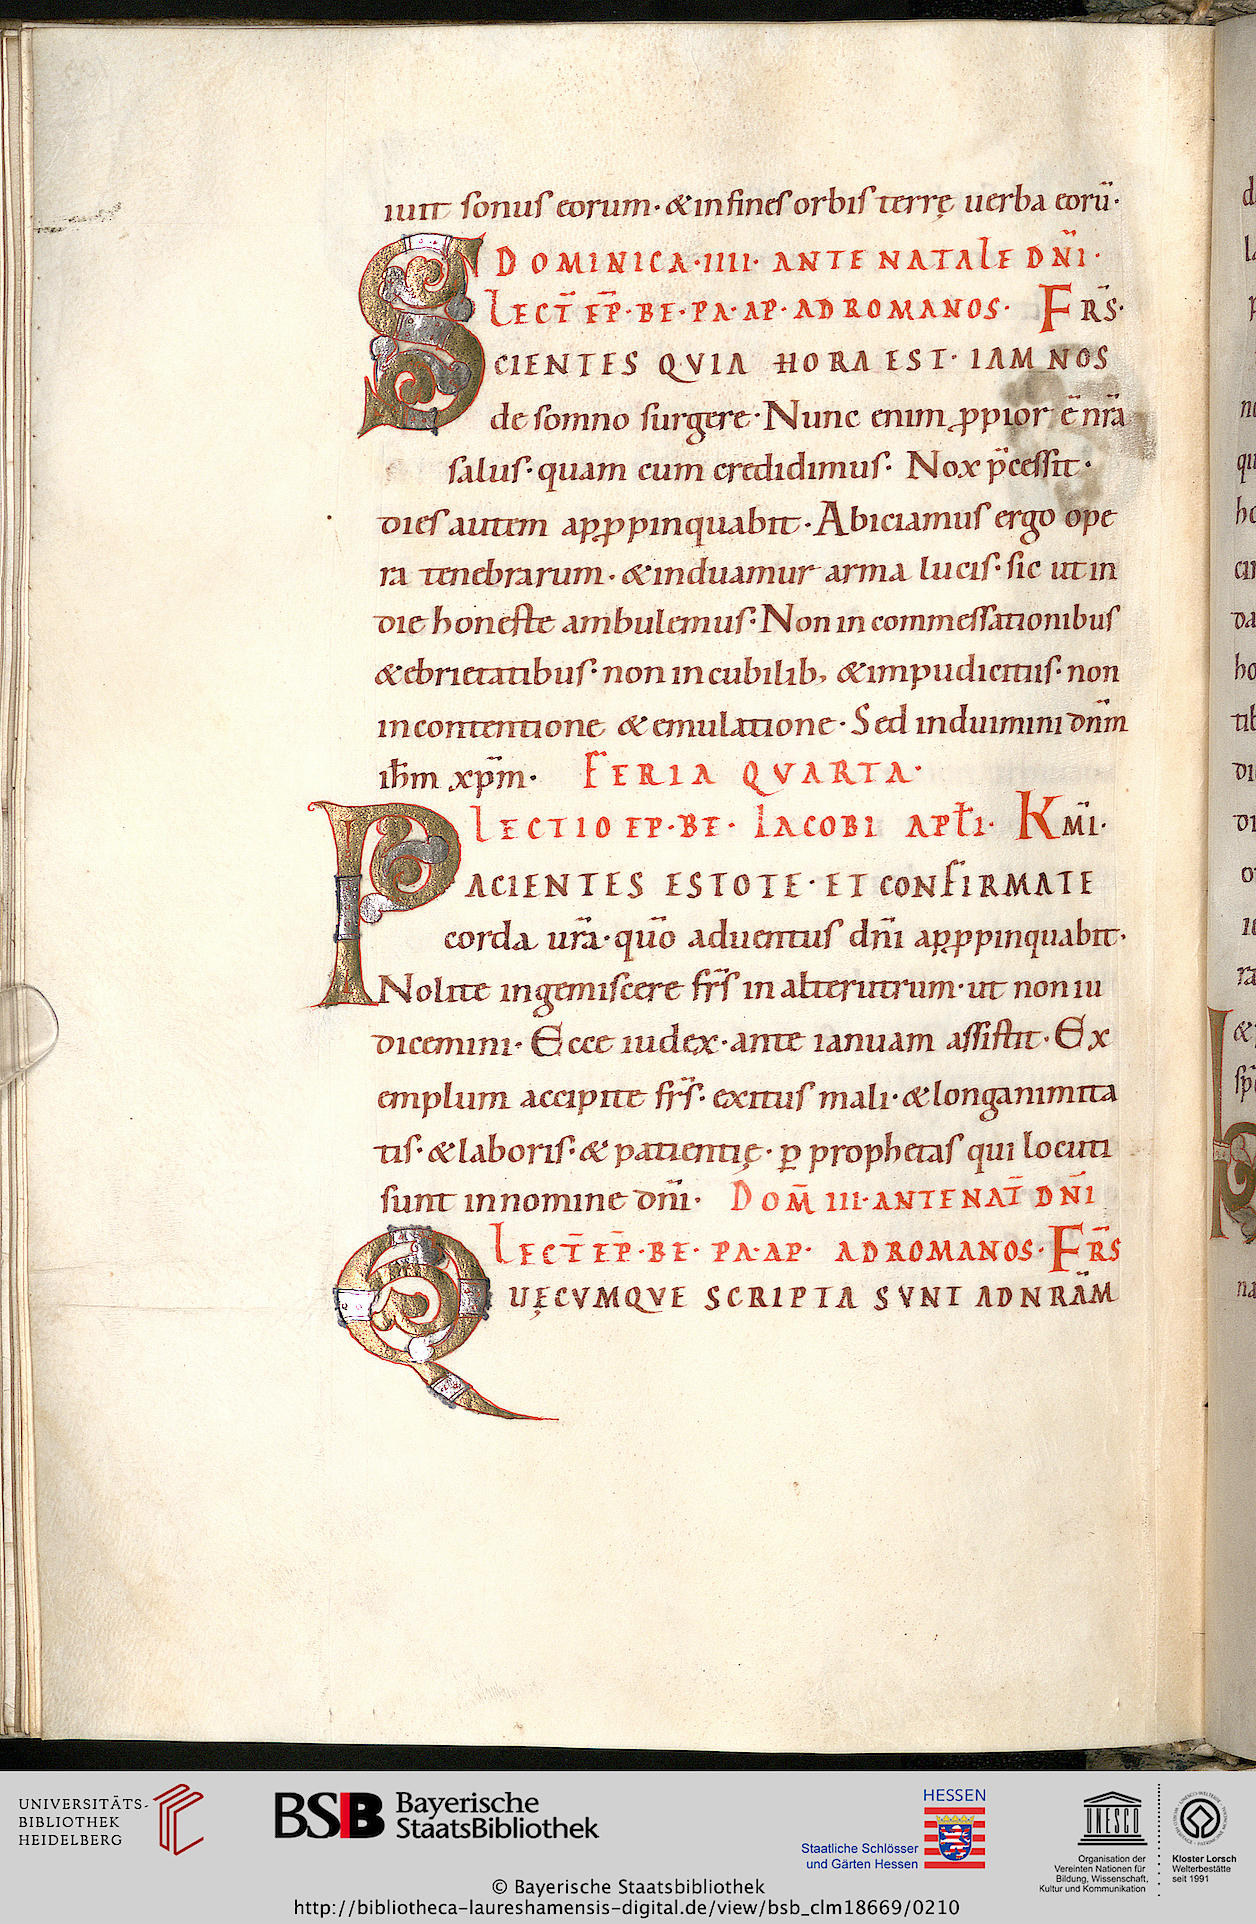 iuit sonus eorum· & in fines orbis terrę uerba eorū·
DOMINICA· IIII· ANTE NATALE DN̄I·
LECT̄ EP̄· BE· PA· AP· AD ROMANOS· FR̄S·
SCIENTES QVIA HORA EST· IAM NOS
de somno surgere· Nunc enim ꝓpior ē nr̄a
salus· quam cum credidimus· Nox p̄cessit·
dies autem apꝓpinquabit· Abiciamus ergo ope
ra tenebrarum· & induamur arma lucis· sic ut in
die honeste ambulemus· Non in commessationibus
& ebrietatibus· non in cubilib; & impudicitiis· non
in contentione & emulatione· Sed induimini dn̄m
ih̄m xp̄m· FERIA QVARTA·
LECTIO EP· BE· IACOBI APL̄I· KM̄I·
PACIENTES ESTOTE· ET CONFIRMATE
corda ur̄a· quō aduentus dn̄i apꝓpinquabit·
Nolite ingemiscere fr̄s in alterutrum· ut non iu
dicemini· Ecce iudex· ante ianuam assistit· Ex
emplum accipite fr̄s· exitus mali· & longanimita
tis· & laboris· & patientię· ꝑ prophetas qui locuti
sunt in nomine dn̄i· DOM̄ III· ANTE NAT̄ DN̄I
LECT̄ EP̄· BE· PA· AP· AD ROMANOS· FR̄S
QUĘCVMQVE SCRIPTA SVNT AD NRĀM
UNIVERSITÄTS-
BIBLIOTHEK
HEIDELBERG
BSB Bayerische
StaatsBibliothek
HESSEN
Staatliche Schlösser
und Gärten Hessen
UNESCO
Organisation der
Vereinten Nationen für
Bildung, Wissenschaft,
Kultur und Kommunikation
Kloster Lorsch
Welterbestätte
seit 1991
© Bayerische Staatsbibliothek
http://bibliotheca-laureshamensis-digital.de/view/bsb_clm18669/0210